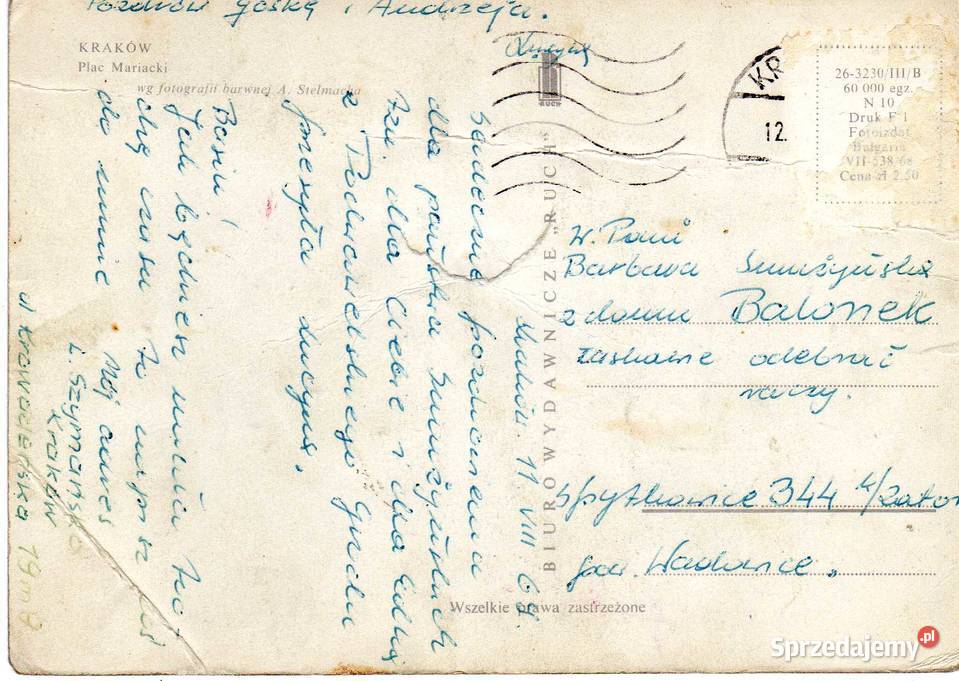 Pozdrów Gośkę i Andrzeja.
Lucyna
KRAKÓW
Plac Mariacki
wg fotografii barwnej A. Stelmacha
RUCH
KR
12.
26-3230/III/B
60 000 egz.
N 10
Druk F 1
Fotoizdat
Bułgaria
VII-538/68
Cena zł 2.50
BIURO WYDAWNICZE „RUCH"
Kraków 11 VIII 69.
Serdeczne pozdrowienia
dla państwa Smużyńskich
tzn. dla Ciebie i dla
z
przesyła Lucyna.
Basiu!
Jak będziesz miała
chę czasu to napisz
do mnie
Mój adres
L. Szymańska
Kraków
ul Krowoderska 19 m 9
W. Pani
Barbara Smużyńska
z domu Balonek
łaskawie odebrać
raczy.
Spytkowice 344 k/Zator
pow. Wadowice
Wszelkie prawa zastrzeżone
Sprzedajemy.pl